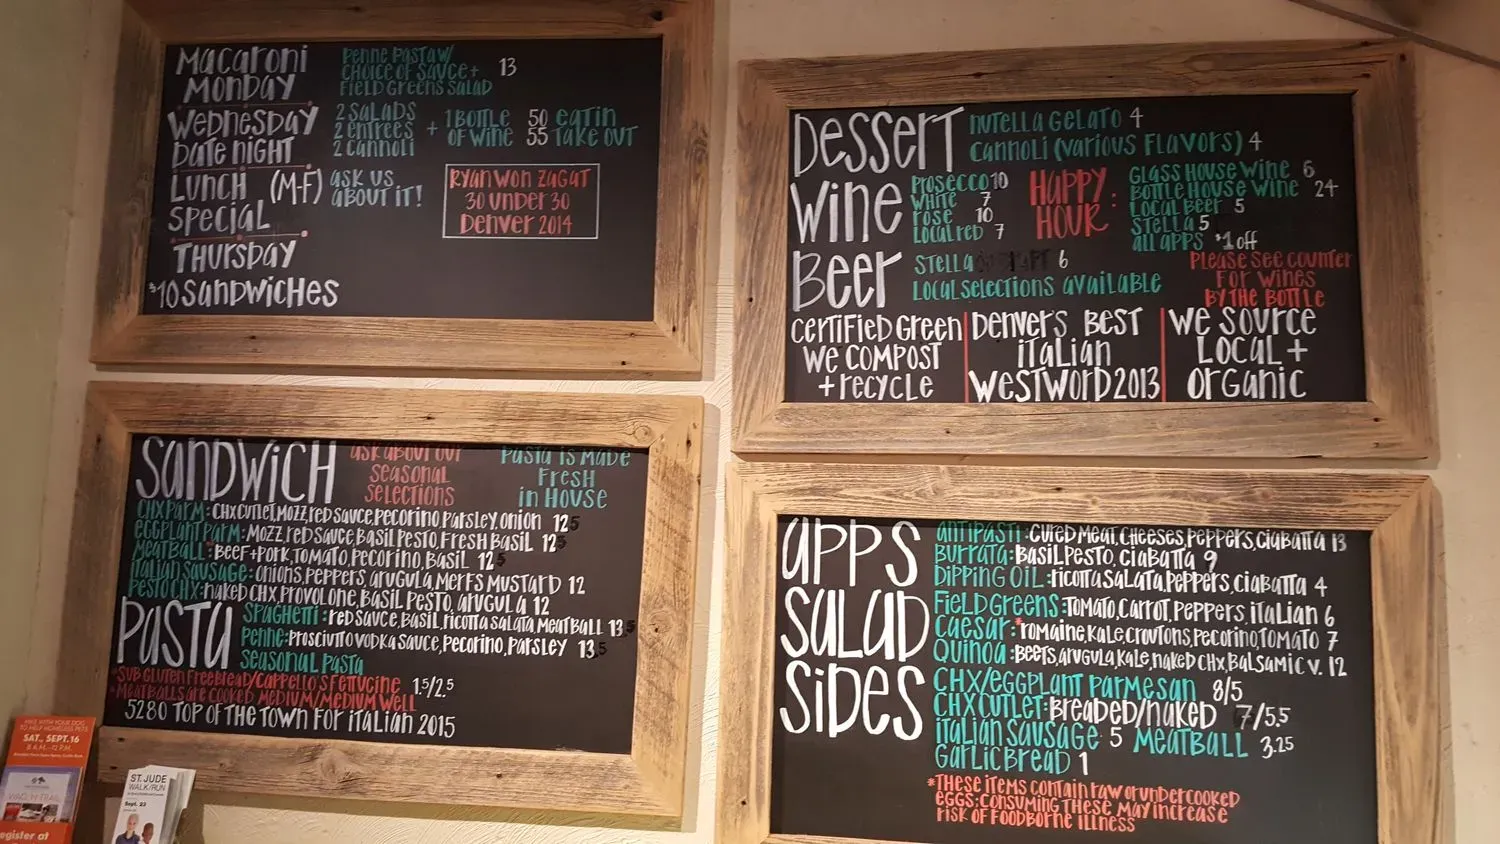 Macaroni
Monday
Penne Pasta w/
choice of sauce +
Field Greens Salad
13
Wednesday
Date Night
2 Salads
2 entrees
2 cannoli
+ 1 Bottle
of wine
50 eat in
55 take out
Lunch (M-F)
Special
ask us
about it!
Ryan won Zagat
30 under 30
Denver 2014
Thursday
$10 Sandwiches
Dessert
Nutella Gelato 4
Cannoli (various flavors) 4
Wine
Prosecco 10
White 7
Rose 10
Local red 7
Happy
Hour :
Glass House Wine 6
Bottle House Wine 24
Local Beer 5
Stella 5
all apps $1 off
Beer
Stella 6
Local selections available
Please see counter
for wines
by the bottle
Certified Green
We compost
+ recycle
Denver's Best
Italian
Westword 2013
We source
Local +
Organic
Sandwich
ask about our
seasonal
selections
Pasta is made
Fresh
in House
Chx Parm: Chx cutlet, mozz, red sauce, pecorino, parsley, onion 12.5
Eggplant Parm: Mozz, red sauce, Basil Pesto, Fresh Basil 12.5
Meatball: Beef + pork, tomato, pecorino, basil 12.5
Italian Sausage: onions, peppers, arugula, merfs mustard 12
Pesto Chx: naked chx, provolone, basil pesto, arugula 12
Pasta
Spaghetti: red sauce, basil, ricotta salata, meatball 13.5
Penne: Prosciutto vodka sauce, pecorino, parsley 13.5
Seasonal Pasta
*Sub Gluten Free Bread/Cappello's Fettucine 1.5/2.5
*Meatballs are cooked medium/medium well
5280 Top of the Town for Italian 2015
Apps
Salad
Sides
Antipasti: cured meat, cheeses, peppers, ciabatta 13
Burrata: Basil pesto, ciabatta 9
Dipping Oil: ricotta salata, peppers, ciabatta 4
Field Greens: Tomato, carrot, peppers, italian 6
Caesar:*romaine, kale, croutons, pecorino, tomato 7
Quinoa: Beets, arugula, kale, naked chx, balsamic v. 12
Chx/Eggplant Parmesan 8/5
Chx cutlet: Breaded/naked 7/5.5
Italian Sausage 5 Meatball 3.25
Garlic Bread 1
*These items contain raw or undercooked
eggs; consuming these may increase
risk of foodborne illness
SAT., SEPT. 16
8 A.M. - 12 P.M.
register at
ST. JUDE
WALK/RUN
Sept. 23